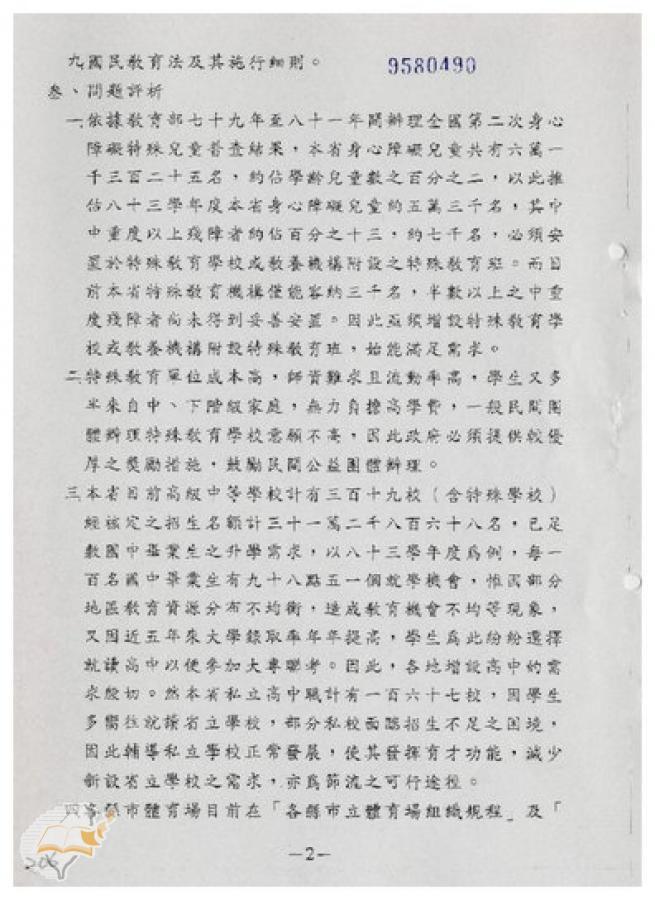 九、國民教育法及其施行細則。
9580490
叁、問題評析
一、依據教育部七十九年至八十一年間辦理全國第二次身心
障礙特殊兒童普查結果，本省身心障礙兒童共有六萬一
千三百二十五名，約佔學齡兒童數之百分之二，以此推
估八十三學年度本省身心障礙兒童約五萬三千名，其中
中重度以上殘障者約佔百分之十三，約七千名，必須安
置於特殊教育學校或教養機構附設之特殊教育班。而目
前本省特殊教育機構僅能容納三千名，半數以上之中重
度殘障者尚未得到妥善安置。因此亟須增設特殊教育學
校或教養機構附設特殊教育班，始能滿足需求。
二、特殊教育單位成本高，師資難求且流動率高，學生又多
半來自中、下階級家庭，無力負擔高學費，一般民間團
體辦理特殊教育學校意願不高，因此政府必須提供較優
厚之獎勵措施，鼓勵民間公益團體辦理。
三、本省目前高級中等學校計有三百十九校（含特殊學校）
經核定之招生名額計三十一萬二千八百六十八名，已足
敷國中畢業生之升學需求，以八十三學年度為例，每一
百名國中畢業生有九十八點五一個就學機會，惟因部分
地區教育資源分布不均衡，造成教育機會不均等現象，
又因近五年來大學錄取率年年提高，學生為此紛紛選擇
就讀高中以便參加大專聯考。因此，各地增設高中的需
求殷切。然本省私立高中職計有一百六十七校，因學生
多嚮往就讀省立學校，部分私校面臨招生不足之困境，
因此輔導私立學校正常發展，使其發揮育才功能，減少
新設省立學校之需求，亦為節流之可行途徑。
四、各縣市體育場目前在「各縣市立體育場組織規程」及「
—2—
206